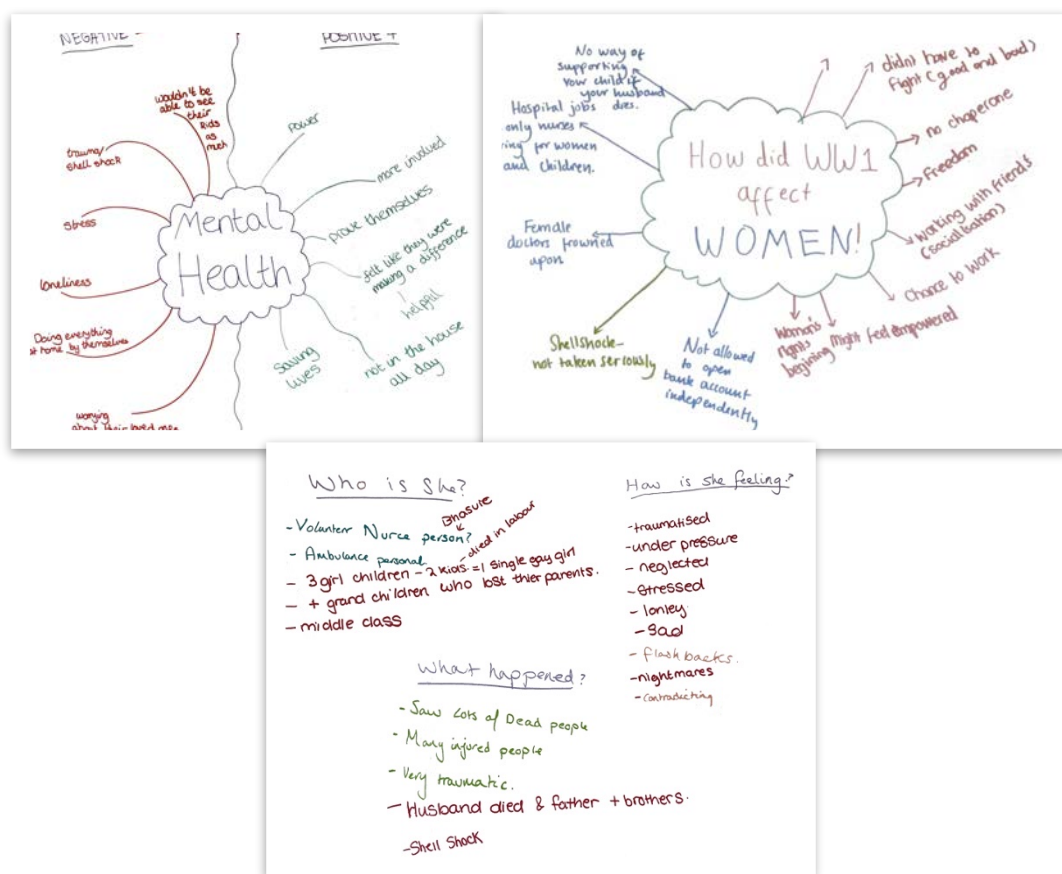 NEGATIVE -
POSITIVE +
wouldn't be
able to see
their
kids
as
much
trauma/
shell shock
stress
loneliness
Doing everything
at home by themselves
worrying
about their loved ones
Mental
Health
Power
more involved
prove themselves
felt like they were
making a difference
helpful
not in the house
all day
saving
lives
No way of
supporting
your child if
your husband
dies.
Hospital jobs
only nurses
ring for women
and children.
Female
doctors frowned
upon
Shellshock-
not taken seriously
Not allowed
to open
bank account
independently
How did WW1
affect
WOMEN!
didn't have to
fight (good and bad)
no chaperone
Freedom
working with friends
(socialisation)
Chance to work
Might feel empowered
Woman's
rights
begining
Who is she?
- Volunteer Nurse person?
- Ambulance personal
- died in labour
- 3 girl children - 2 kids = 1 single gay girl
- + grand children who lost thier parents.
- middle class
How is she feeling?
- traumatised
- under pressure
- neglected
- stressed
- lonley
- sad
- flash backs.
- nightmares
- contradicting
What happened?
- Saw Lots of Dead people
- Many injured people
- Very traumatic.
- Husband died & father + brothers.
- Shell Shock